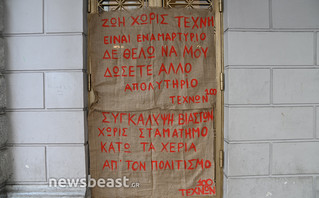 ΖΩΗ ΧΩΡΙΣ ΤΕΧΝΗ
ΕΙΝΑΙ ΕΝΑ ΜΑΡΤΥΡΙΟ
ΔΕ ΘΕΛΩ ΝΑ ΜΟΥ
ΔΩΣΕΤΕ ΑΛΛΟ
ΑΠΟΛΥΤΗΡΙΟ
ΤΕΧΝΩΝ
ΣΥΓΚΑΛΥΨΗ ΒΙΑΣΤΩΝ
ΧΩΡΙΣ ΣΤΑΜΑΤΗΜΟ
ΚΑΤΩ ΤΑ ΧΕΡΙΑ
ΑΠ' ΤΟΝ ΠΟΛΙΤΙΣΜΟ
ΤΕΧΝΩΝ
newsbeast.GR